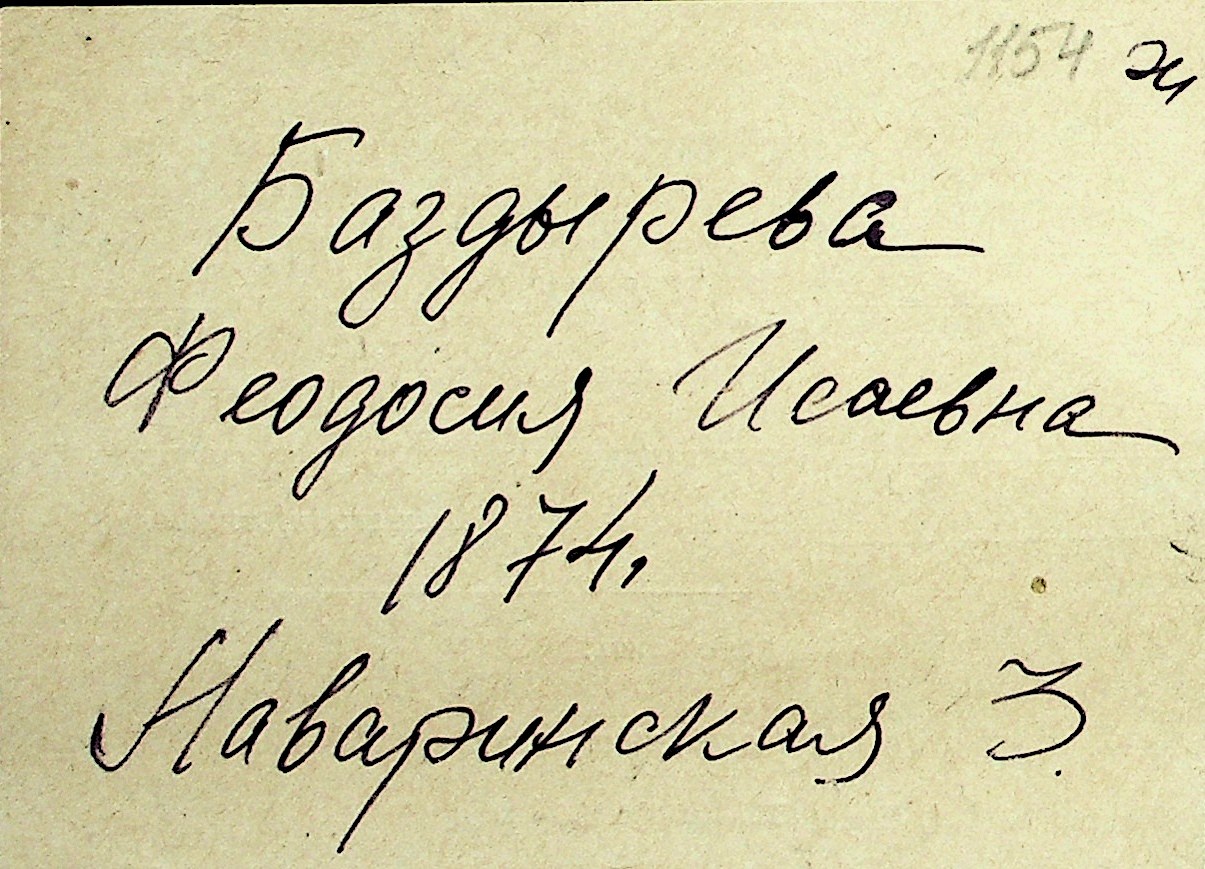 1154 ж
Баздырева
Феодосия Исаевна
1874.
Наваринская 3.